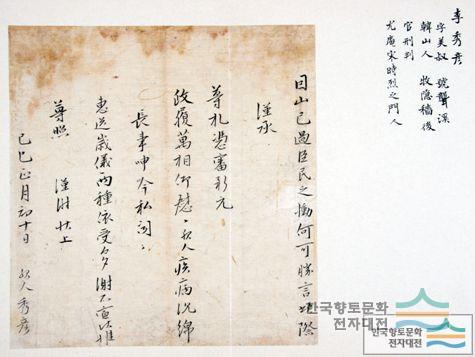 李秀彦
字美叔 號聾溪
韓山人 牧隱穡後
官刑判
尤庵宋時烈之門人
因山已過臣民之慟何可勝言此際
謹承
尊札憑審新元
政履萬相仰慰
人疾病沉綿
長事呻吟私悶
惠送歲儀兩種依受多謝不宣惟
尊照 謹謝狀上
己巳正月初十日 人秀彦
한국향토문화
전자대전
한국향토문화
전자대전